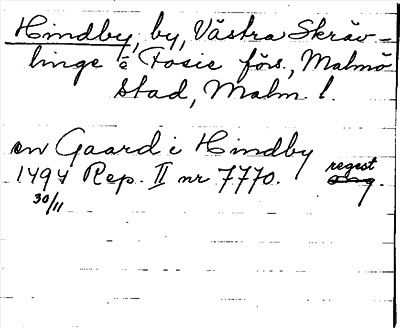 Hindby, by, Västra Skräv-
linge & Fosie förs., Malmö
stad, Malm. l.
en Gaard i Hindby
1494 Rep. II nr 7770. regest
30/11